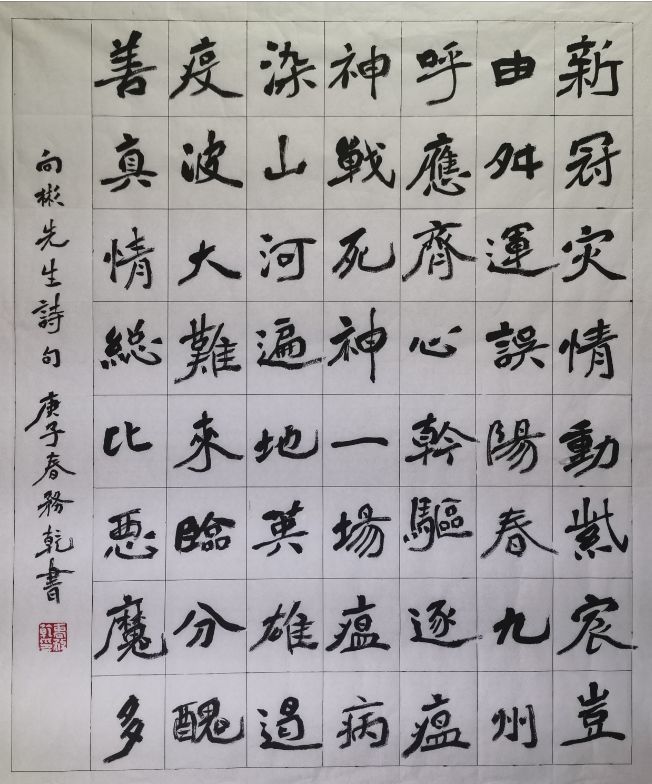 新冠灾情動紫宸豈
由舛運誤陽春九州
呼應齊心幹驅逐瘟
神戦死神一場瘟病
染山河遍地英雄遏
疫波大難來臨分醜
善真情総比悪魔多
向彬先生詩句 庚子春務乾書